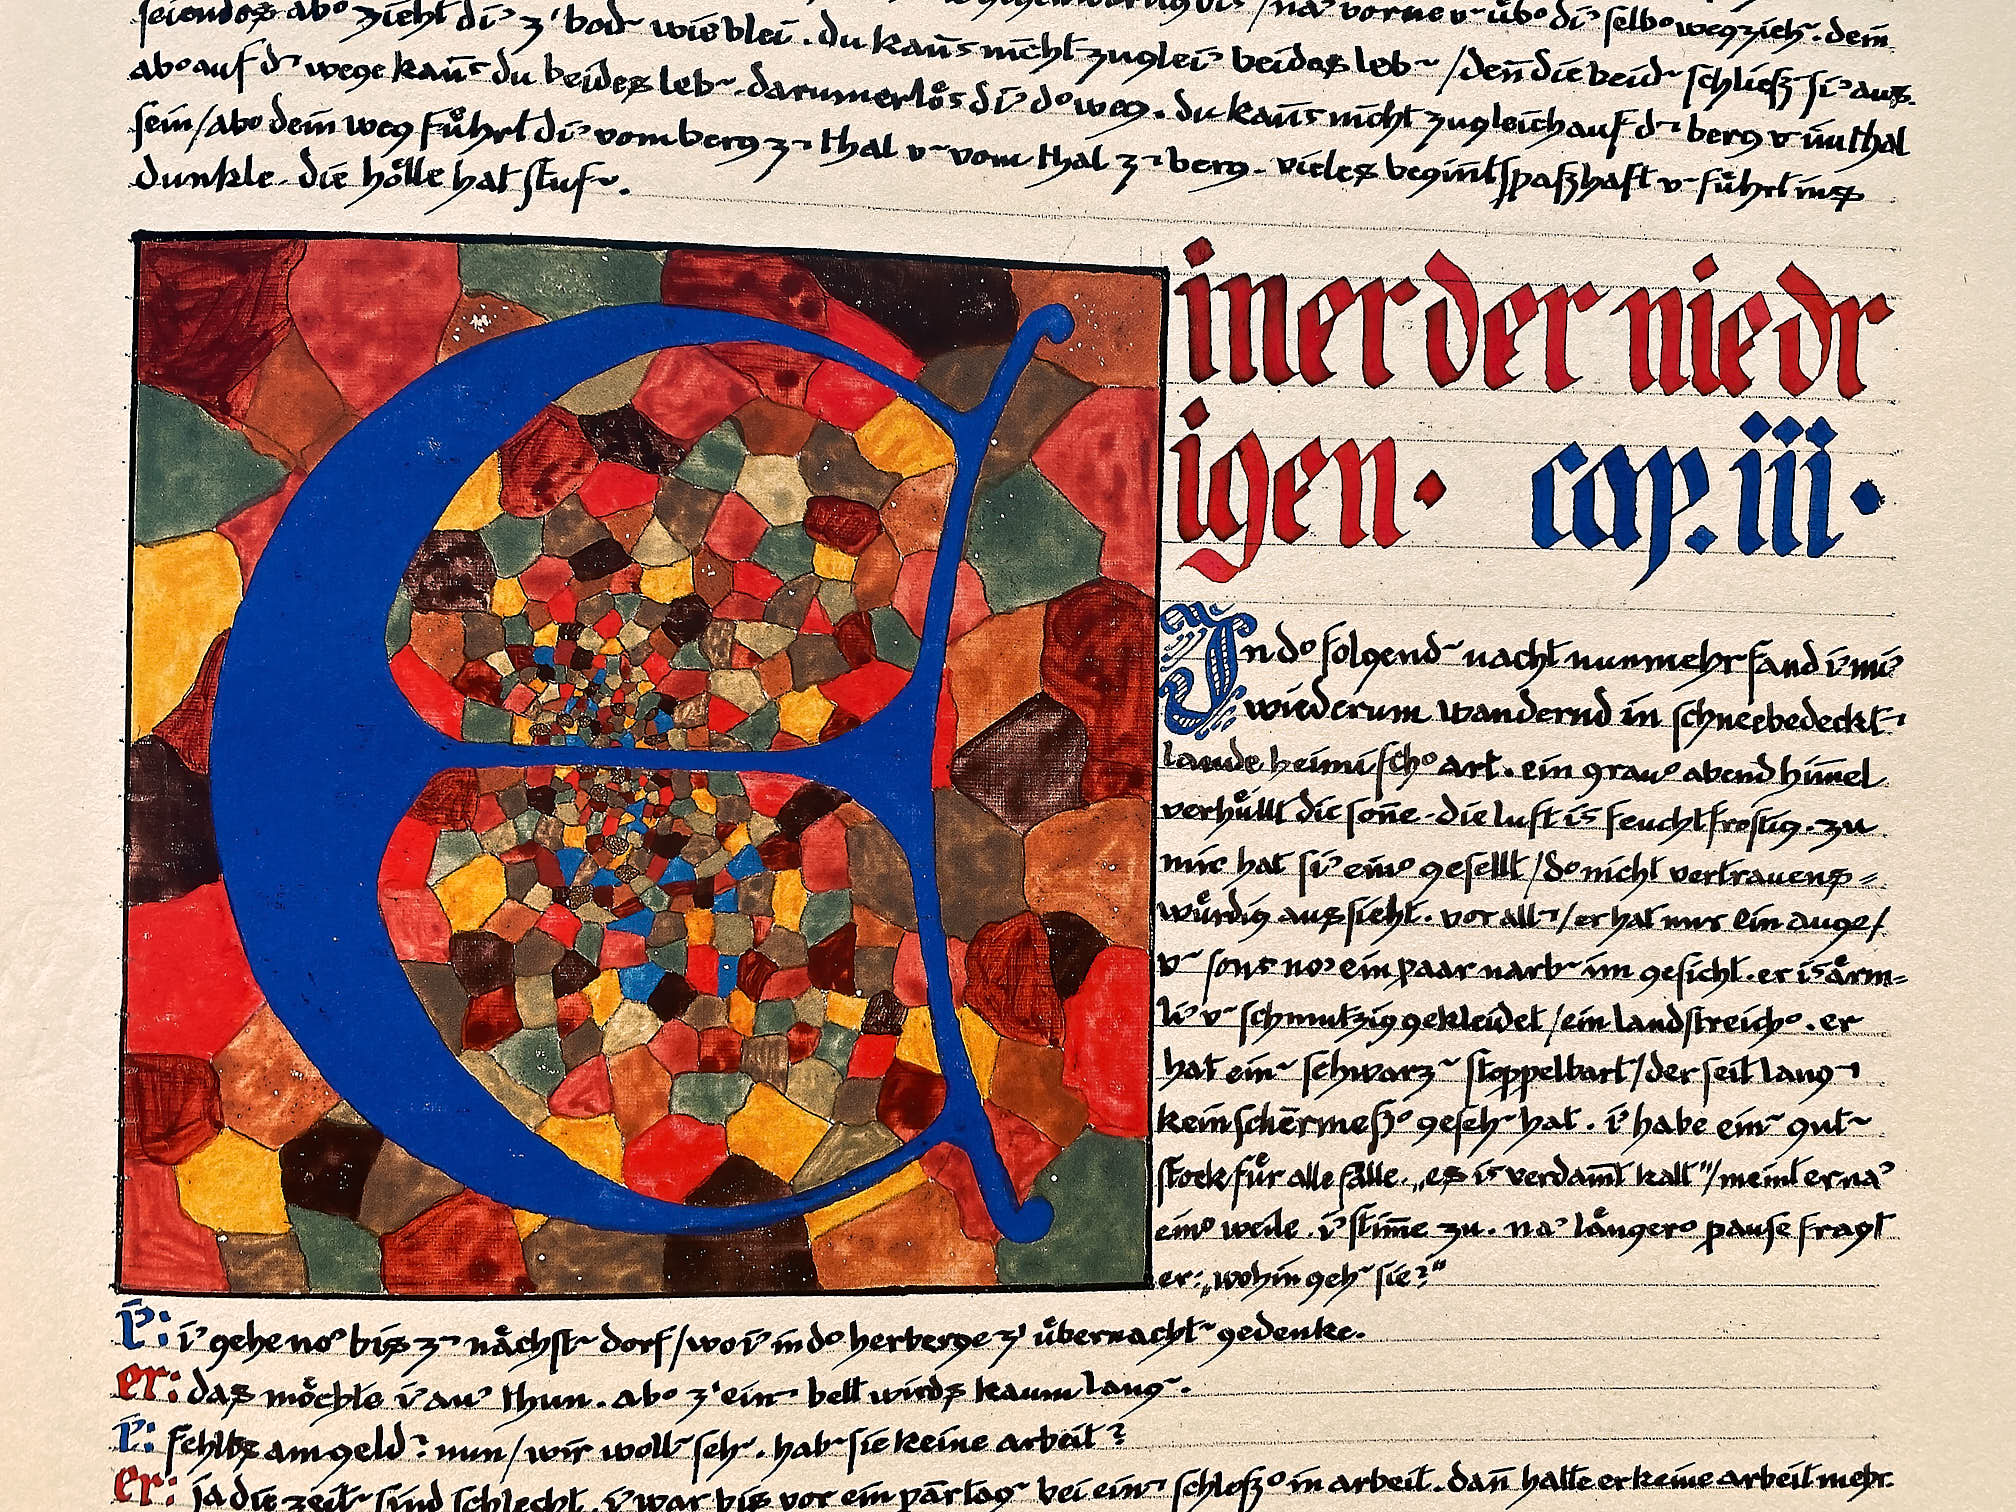 seiendes abᵒ zieht di᾽ z᾽ bod~ wie blei . du kan̄s nicht zuglei᾽ beides leb~ / den̄ die beid~ schließ~ si᾽ aus.
abᵒ auf d~ wege kan̄s du beides leb~ . darum erlös di᾽ dᵒ weg . du kan̄s nicht zugleich auf d~ berg v~ im thal
sein / abᵒ dein weg führt di᾽ vom berg z~ thal v~ vom thal z~ berg . vieles begin̄t spaßhaft v~ führt ins
dunkle . die hölle hat stuf~ .
Einer der niedr
igen . cap. iii .
In dᵒ folgend~ nacht nunmehr fand i᾽ mi᾽
wiederum wandernd in schneebedeckt~
lande heimischᵒ art . ein grauᵒ abendhim̄el
verhüllt die son̄e . die luft is feuchtfrostig . zu
mir hat si᾽ einᵒ gesellt / dᵒ nicht vertrauens=
würdig aussieht . vor all~ / er hat nur ein auge /
v~ sons no᾽ ein paar narb~ im gesicht . er is ärm=
li᾽ v~ schmutzig gekleidet / ein landstreichᵒ . er
hat ein~ schwarz~ stoppelbart / der seit lang~
kein scheermeßᵒ geseh~ hat . i᾽ habe ein~ gut~
stock für alle fälle . „es is verdam̄t kalt" / meint er na᾽
einᵒ weile . i᾽ stim̄e zu . na᾽ längerᵒ pause fragt
er : „wohin geh~ sie ?"
i᾽: i᾽ gehe no᾽ bis z~ nächst~ dorf / wo i᾽ in dᵒ herberge z᾽ übernacht~ gedenke .
er: das möchte i᾽ au᾽ thun . abᵒ z᾽ ein~ bett wirds kaum lang~ .
i᾽: fehlts am geld ? nun / wir woll~ seh~ . hab~ sie keine arbeit ?
er: ja die zeit~ sind schlecht . i᾽ war bis vor ein paar tag~ bei ein~ schloßᵒ in arbeit . dan̄ hatte er keine arbeit mehr .